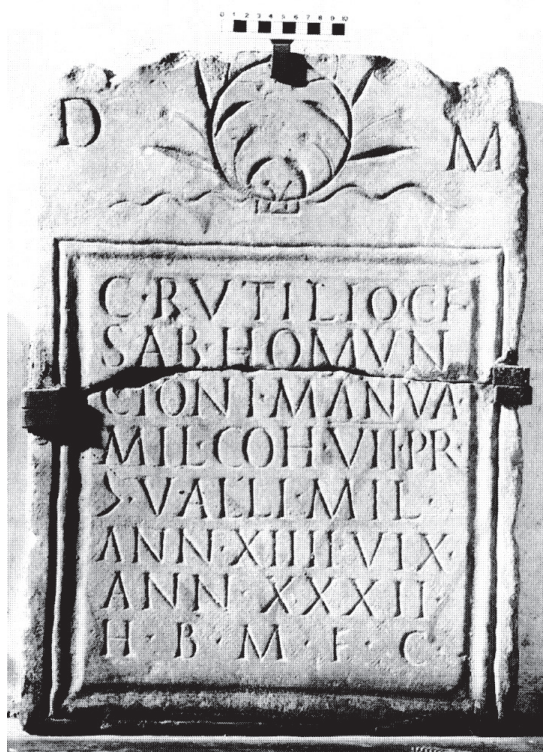 0 1 2 3 4 5 6 7 8 9 10
D M
C·RVTILIO·C·F
SAB·HOMVN
CIONI·MANVA·
MIL·COH·VII·PR
>·VALLI·MIL·
ANN·XIIII·VIX·
ANN·XXXII·
H·B·M·F·C·